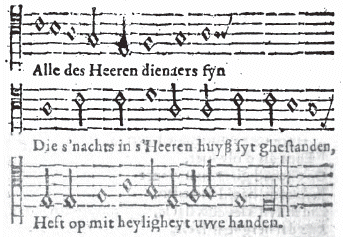 Alle des Heeren dienaers syn
Die s'nachts in s'Heeren huyß syt ghestanden,
Heft op mit heyligheyt uwe handen.